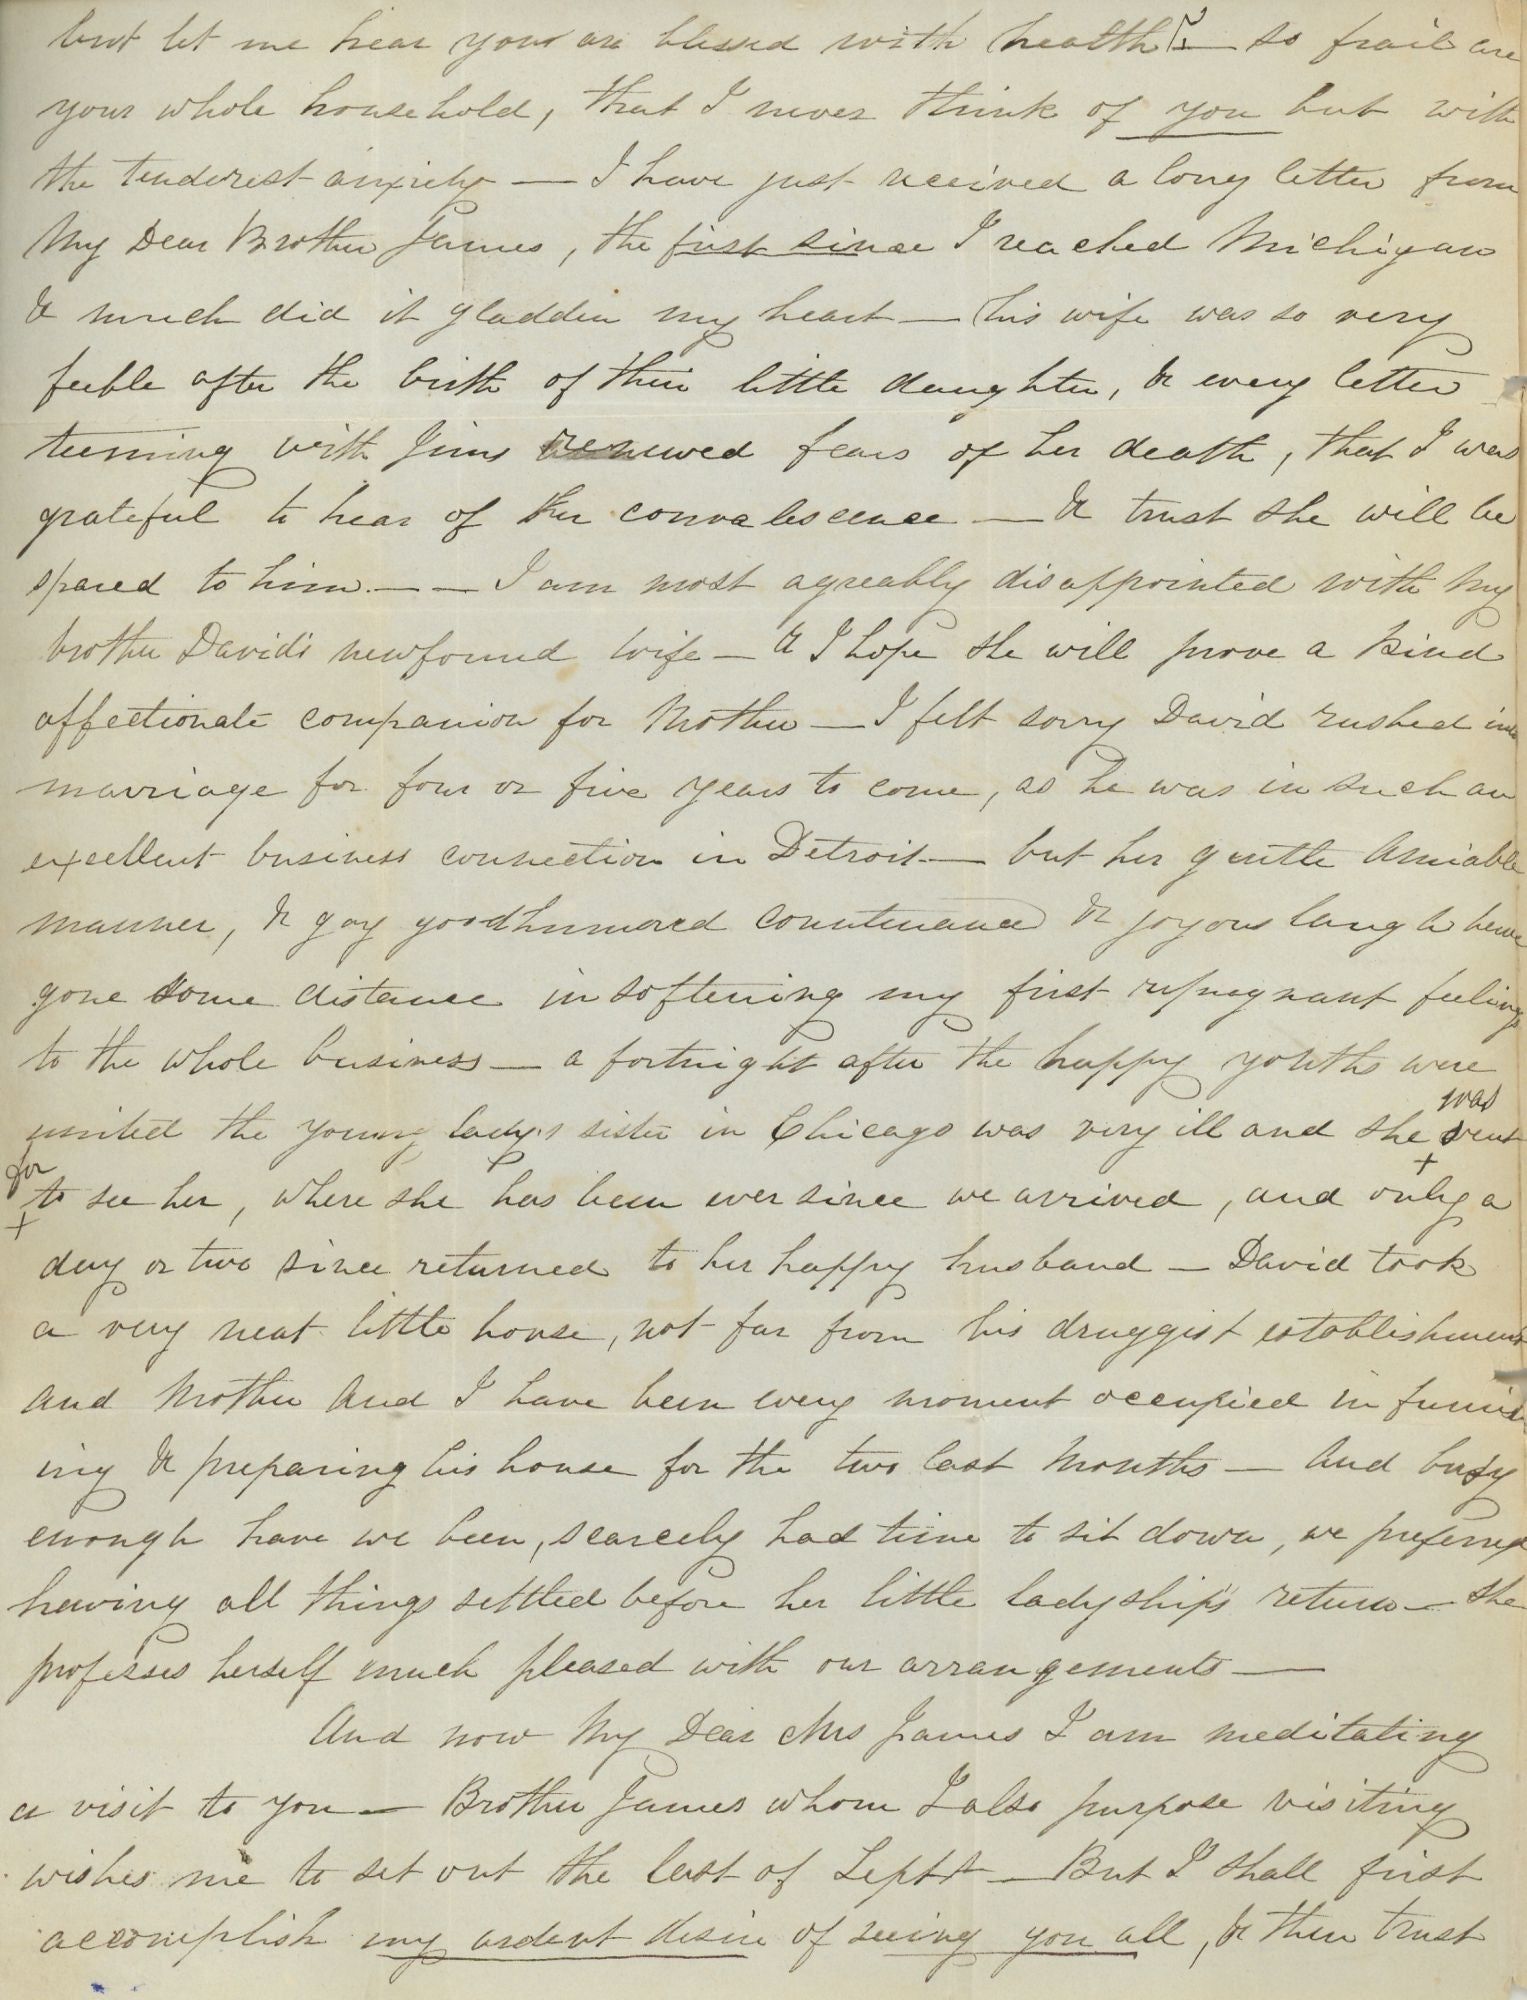 but let me hear you are blessed with health — so frail are
your whole household, that I never think of you but with
the tenderest anxiety — I have just received a long letter from
My Dear Brother James, the first since I reached Michigan
& much did it gladden my heart — his wife was so very
feeble after the birth of their little daughter, & every letter
teeming with Jims renewed fears of her death, that I was
grateful to hear of her convalescence — & trust she will be
spared to him — — I am most agreably disappointed with my
brother David's newfound wife — & I hope she will prove a kind
affectionate companion for Mother — I felt sorry David rushed into
marriage for four or five years to come, as he was in such an
excellent business connection in Detroit — but her gentle Amiable
manner, & gay goodhumored countenance & joyous laugh have
gone some distance in softening my first repugnant feelings
to the whole business — a fortnight after the happy youths were
united the young lady's sister in Chicago was very ill and she was sent
for to see her, where she has been ever since we arrived, and only a
day or two since returned to her happy husband — David took
a very neat little house, not far from his druggist establishment
And Mother And I have been every moment occupied in furnish
ing & preparing his house for the two last months — And busy
enough have we been, scarcely had time to sit down, we preferred
having all things settled before her little ladyship's return — she
professes herself much pleased with our arrangements —
And now My Dear Mrs James I am meditating
a visit to you — Brother James whom I also purpose visiting
wishes me to set out the last of Septr — But I shall first
accomplish my ardent desire of seeing you all, & then trust